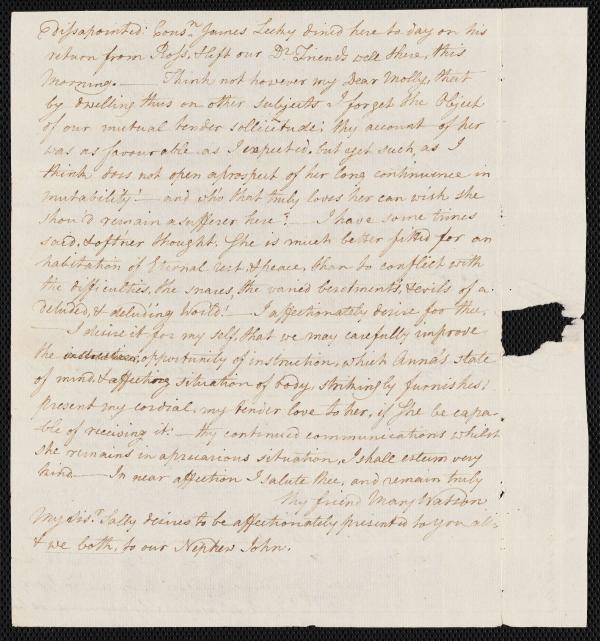 Dissapointed: Cousn. James Lecky dined here to day on his
return from Ross, & left our Dr. Friends well there, this
Morning. — Think not however my Dear Molly, that
by dwelling thus on other subjects I forget the Object
of our mutual tender sollicitude; thy account of her
was as favourable as I expected, but yet such, as I
think does not open a prospect of her long continuence in
mutability! — and who that truly loves her can wish she
should remain a sufferer here? — I have some times
said, & oft'ner thought. She is much better fitted for an
habitation of Eternal rest, & peace, than to conflict with
the difficulties, the snares, the varied besetments, & evils of a
deluded, & deluding World! — I affectionately desire for thee,
— I desire it for my self, that we may carefully improve
the opportunity of instruction, which Anna's state
of mind, & affecting situation of body, strikingly furnishes;
present my cordial, my tender love to her, if She be capa-
ble of receiving it: — thy continued communications whilst
she remains in a precarious situation, I shall esteem very
kind — In near affection I salute thee, and remain truly
thy friend Mary Watson
My Sisr. Sally desires to be affectionately presented to you all
& we both, to our Nephew John.